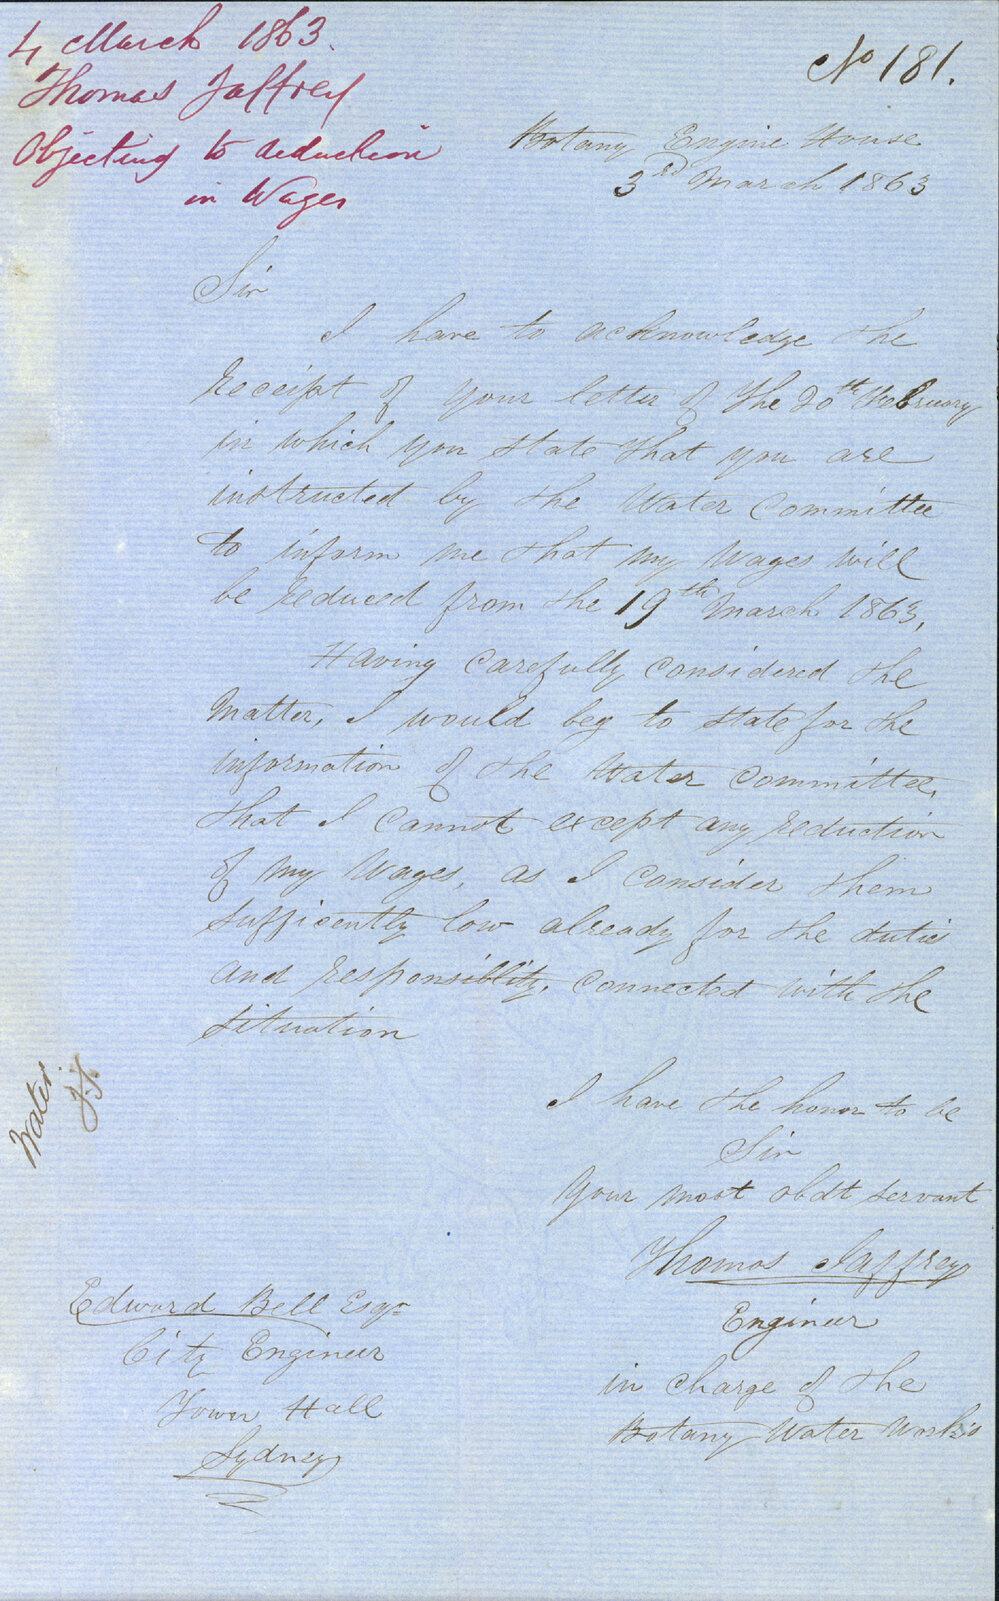 4 March 1863.
Thomas Jaffrey
Objecting to deduction
in Wages
No 181.
Botany Engine House
3rd March 1863
Sir
I have to acknowledge the
receipt of your letter of the 20th February
in which you state that you are
instructed by the Water Committee
to inform me that my wages will
be reduced from the 19th March 1863,
Having carefully considered the
Matter, I would beg to state for the
information of the Water Committee,
that I cannot except any reduction
of my Wages, as I consider them
sufficently low already for the duties
and responsiblity, connected with the
situation
I have the honor to be
Sir
Your most obdt servant
Thomas Jaffrey
Engineer
in charge of the
Botany Water Works
Water.
Edward Bell Esqr
City Engineer
Town Hall
Sydney